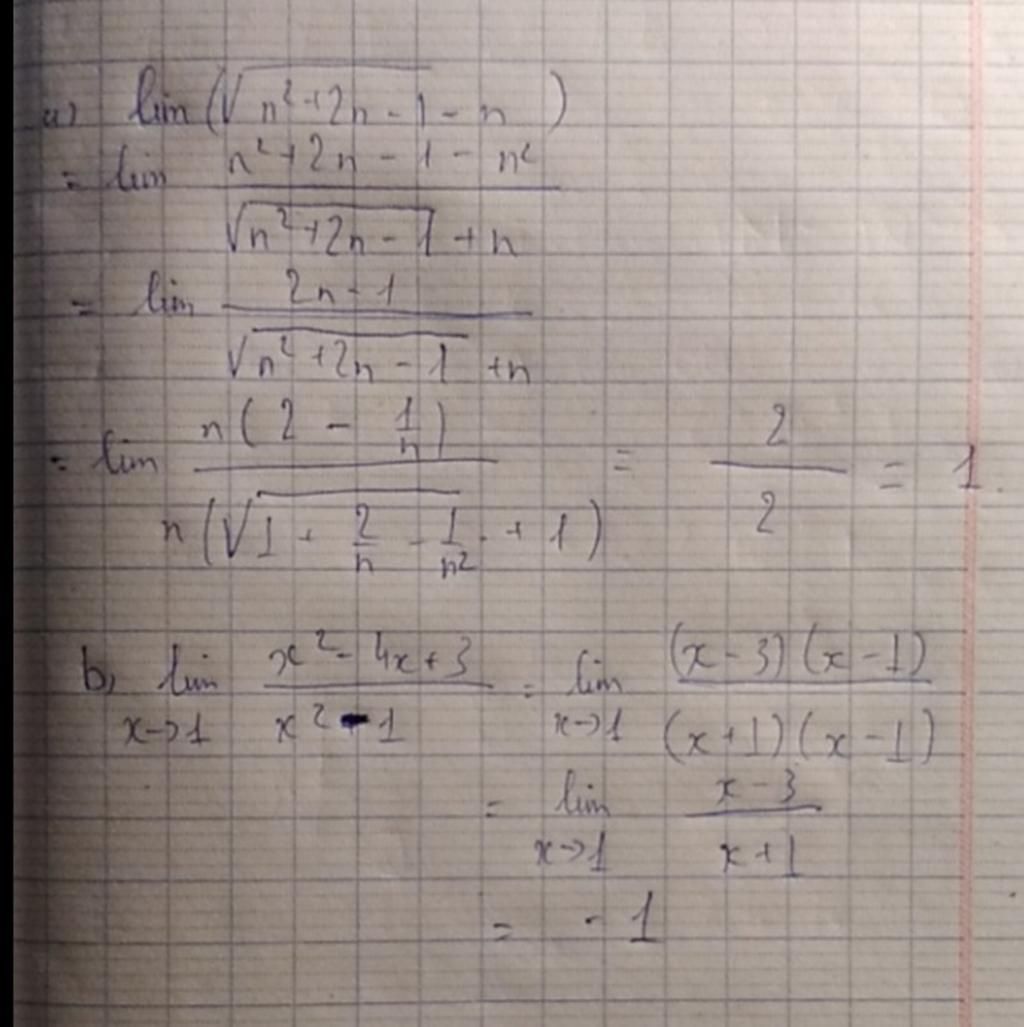 a) lim (√(n²+2n-1) - n)
= lim (n²+2n-1-n²)/(√(n²+2n-1) + n)
= lim (2n-1)/(√(n²+2n-1) + n)
= lim n(2 - 1/n)/n(√(1 + 2/n - 1/n²) + 1) = 2/2 = 1.
b, lim x→1 (x² - 4x + 3)/(x² - 1) = lim x→1 (x-3)(x-1)/(x+1)(x-1)
= lim x→1 (x-3)/(x+1)
= -1